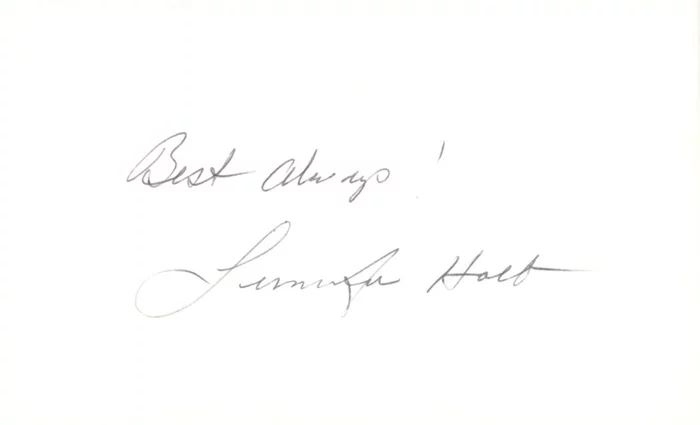 Best Always!
Jennifer Holt